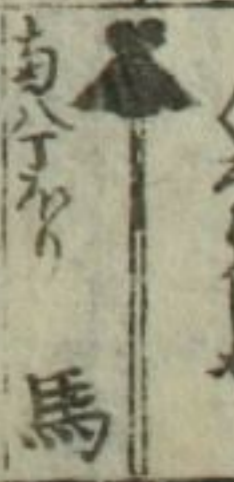 南八丁ほり
馬